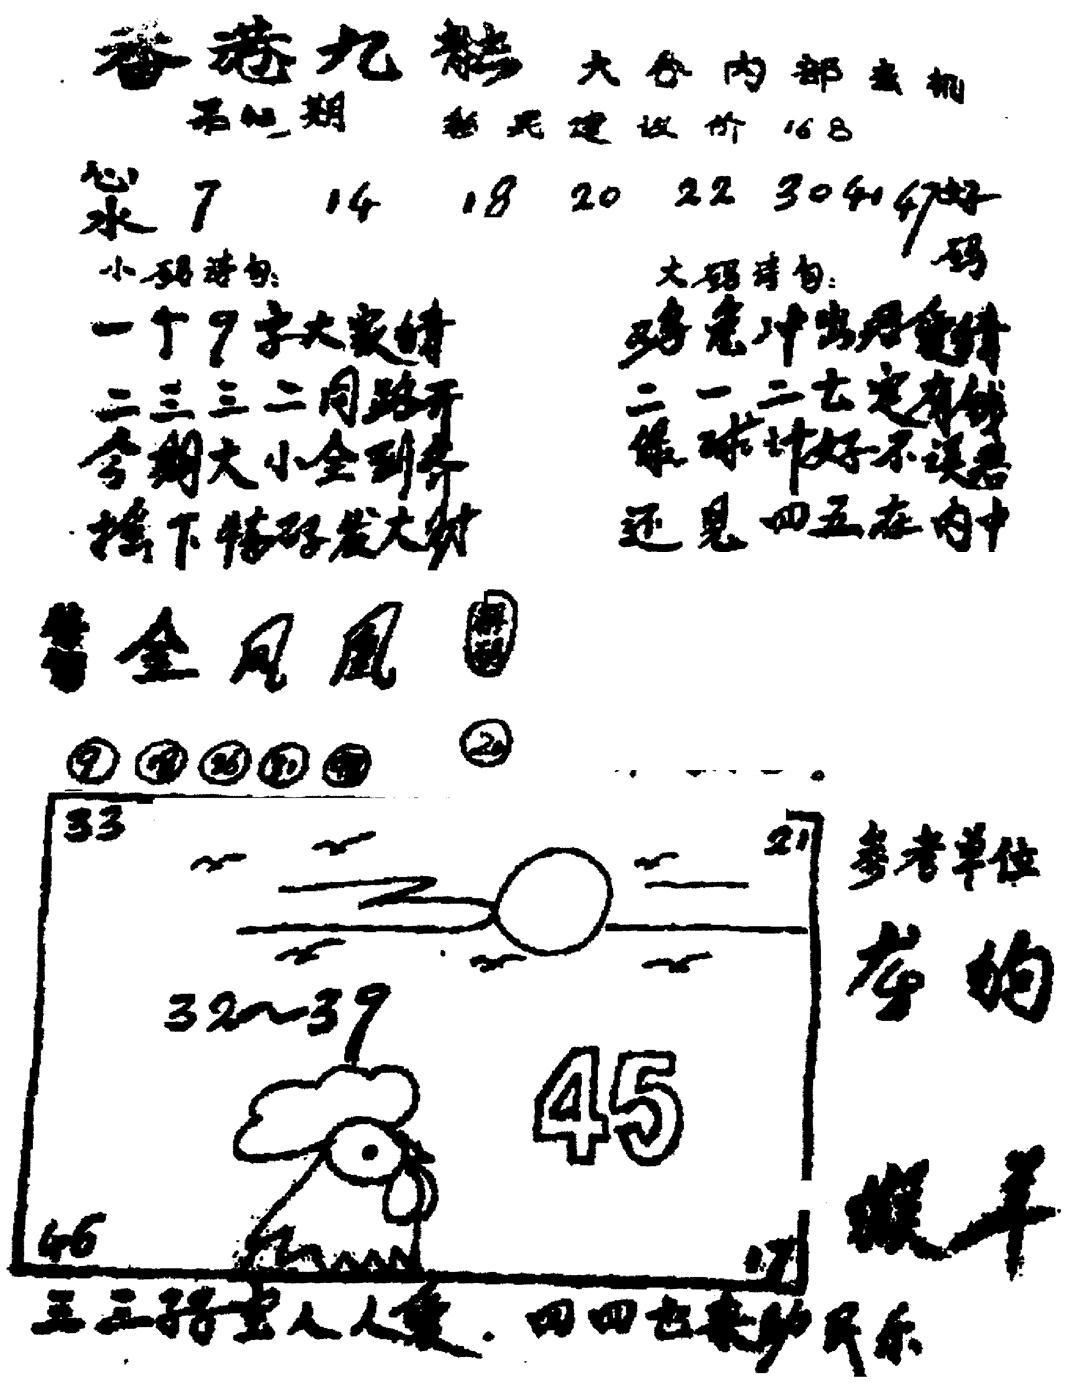 香港九龍 大谷内部玄机
第 期 彩民建议价168
心水 7 14 18 20 22 30 41 47 好码
小码诗句:
一个9字大家猜
二三三二同路开
今期大小全到齐
搖下特码发大财
大码诗句:
鸡兔冲出丹 猜
二一二七定有钱
環球计好不误君
还见四五在内中
金凤凰
解码
9 26 31
20
33
21
32～39
45
46
17
参考单位
龙 狗
猴 羊
三三孖孖宝人人愛．四四也来助民乐